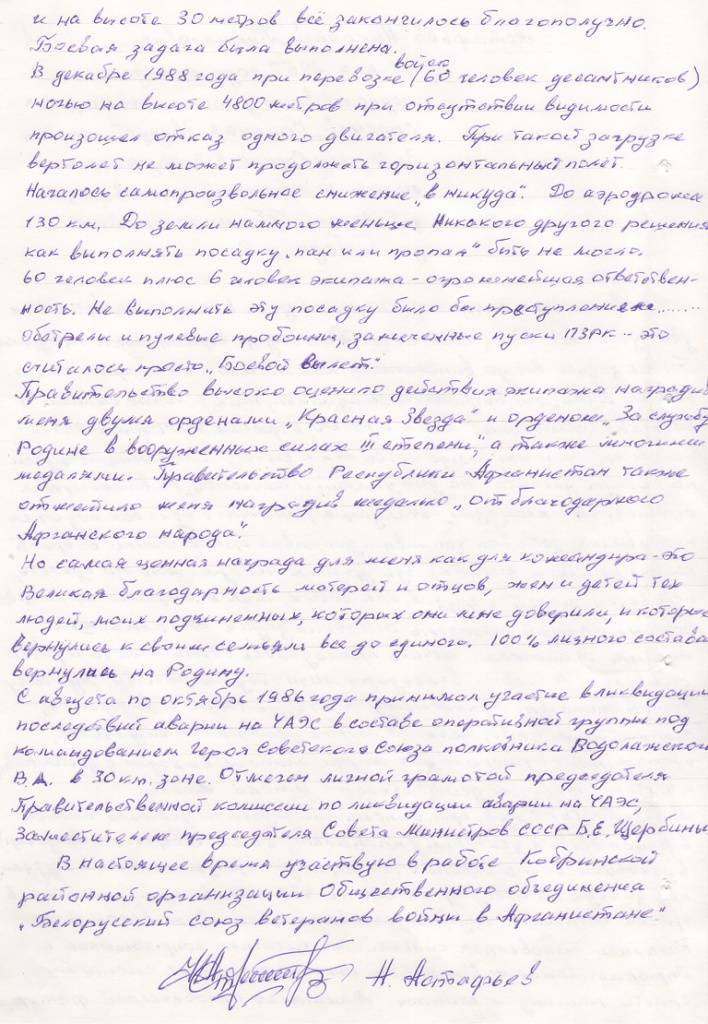 и на высоте 30 метров всё закончилось благополучно.
Боевая задача была выполнена.
войск
В декабре 1988 года при перевозке (60 человек десантников)
ночью на высоте 4800 метров при отсутствии видимости
произошел отказ одного двигателя. При такой загрузке
вертолет не может продолжать горизонтальный полет.
Началось самопроизвольное снижение „в никуда". До аэродрома
130 км. До земли намного меньше. Никакого другого решения
как выполнять посадку „пан или пропал" быть не могло.
60 человек плюс 6 человек экипажа - огромнейшая ответствен-
ность. Не выполнить эту посадку было бы преступлением......
Обстрелы и пулевые пробоины, замеченные пуски ПЗРК - это
считалось просто „Боевой вылет".
Правительство высоко оценило действия экипажа наградив
меня двумя орденами „Красная Звезда" и орденом „За службу
Родине в вооруженных силах III степени", а также многими
медалями. Правительство Республики Афганистан также
отметило меня наградив медалью „от благодарного
Афганского народа".
Но самая ценная награда для меня как для командира - это
Великая благодарность матерей и отцов, жен и детей тех
людей, моих подчиненных, которых они мне доверили, и которые
вернулись к своим семьям все до единого. 100% личного состава
вернулись на Родину.
С августа по октябрь 1986 года принимал участие в ликвидации
последствий аварии на ЧАЭС в составе оперативной группы под
командованием Героя Советского Союза полковника Водолажского
В.А. в 30 км. зоне. Отмечен личной грамотой председателя
Правительственной комиссии по ликвидации аварии на ЧАЭС,
Заместителем председателя Совета Министров СССР Б.Е. Щербины
В настоящее время участвую в работе Кобринской
районной организации Общественного объединения
„Белорусский союз ветеранов войны в Афганистане"
Н. Астафьев